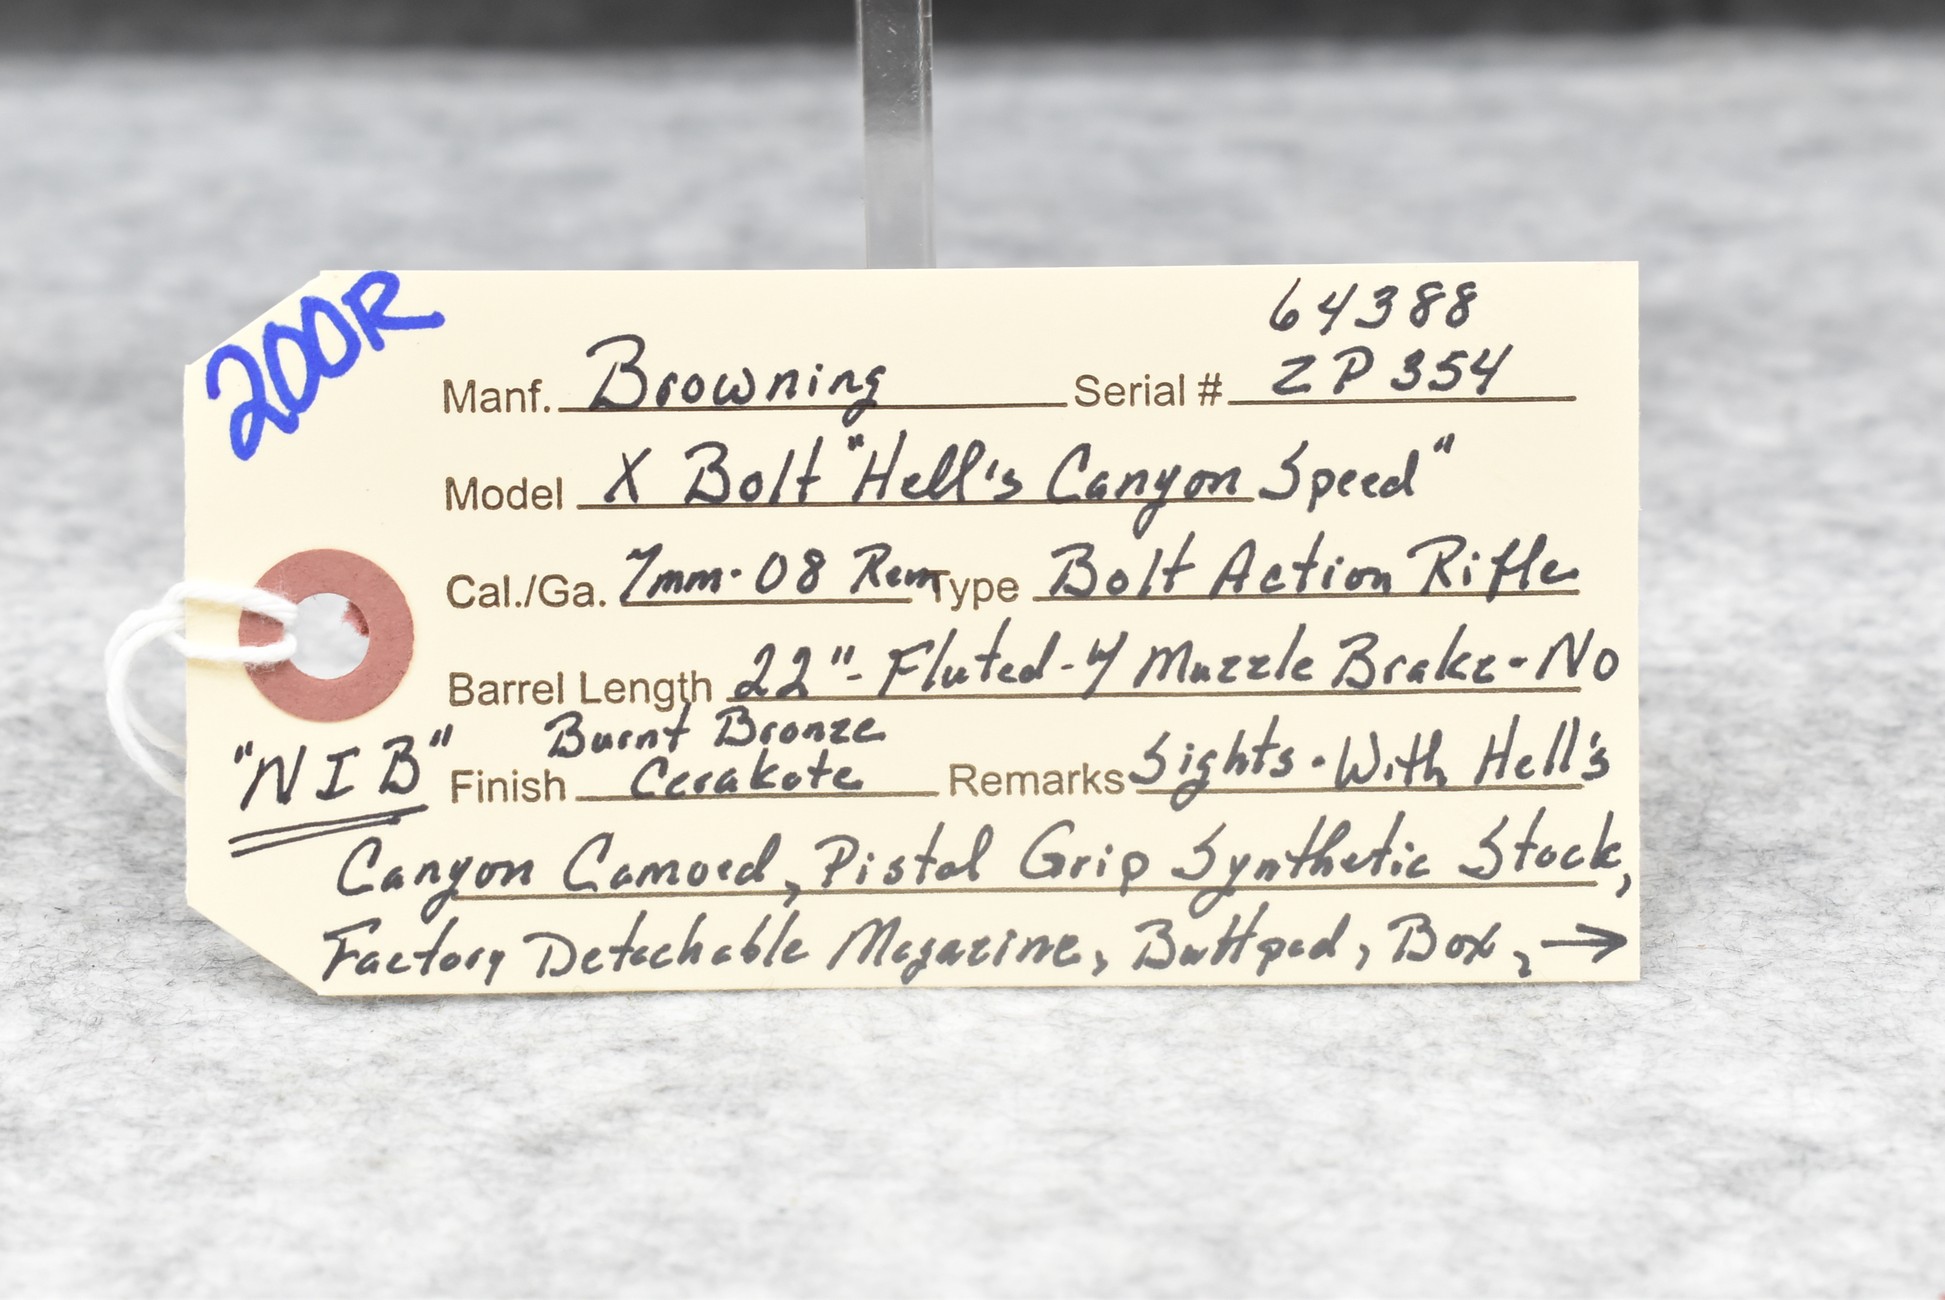 200R
64388
Manf. Browning Serial # ZP354
Model X Bolt "Hell's Canyon Speed"
Cal./Ga. 7mm-08 Rem Type Bolt Action Rifle
Barrel Length 22"- Fluted - y Muzzle Brake - No
"NIB" Burnt Bronze
Finish Cerakote Remarks Sights - With Hell's
Canyon Camoed, Pistol Grip Synthetic Stock,
Factory Detachable Magazine, Buttpad, Box, →